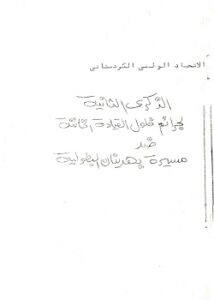 الاتحاد الوطني الكردستاني
الذكرى الثانية
لجرائم فلول القيادة الخائنة
ضد
مسيرة پهدينان البطولية